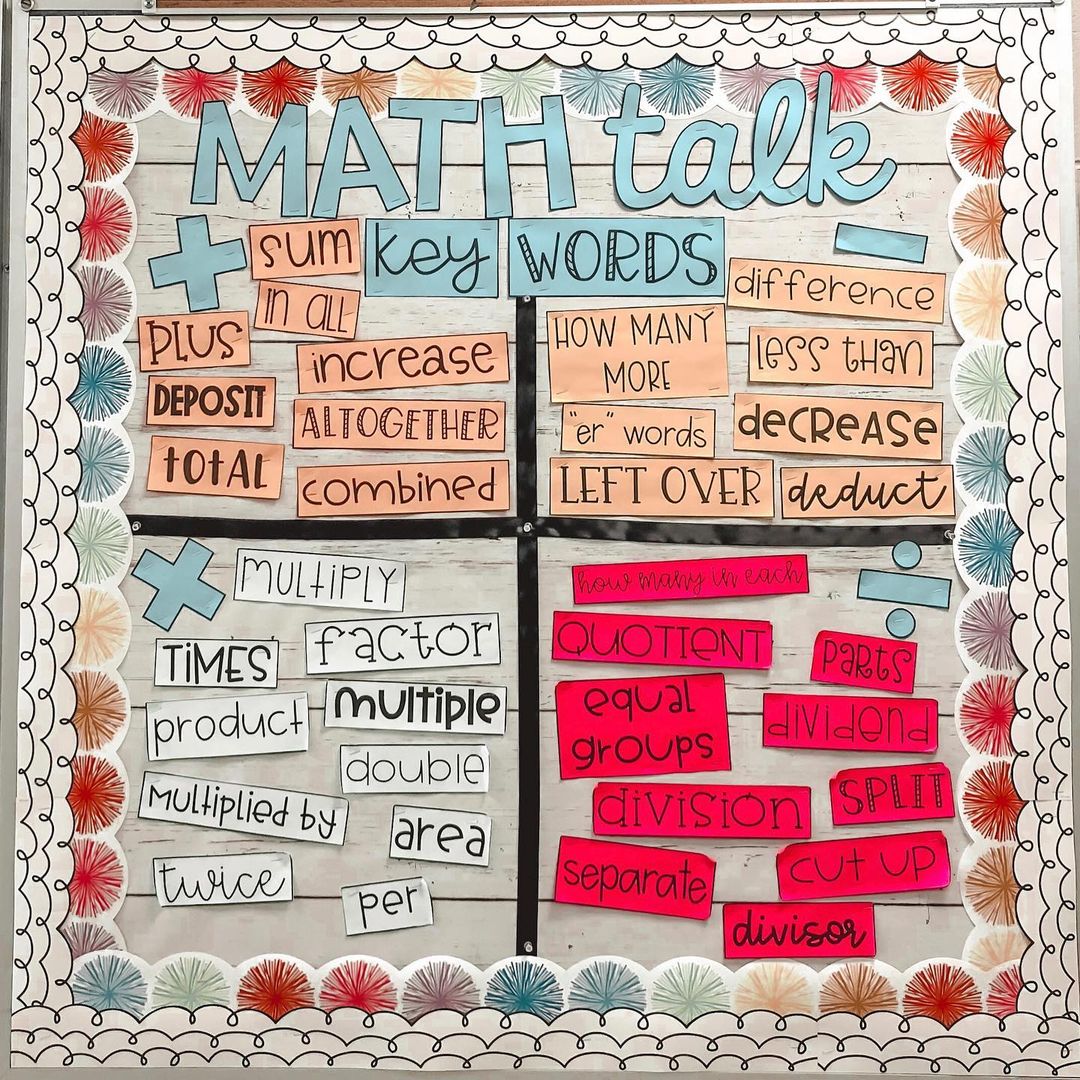 MATH talk
key WORDS
+
sum
in all
PLUS
increase
DEPOSIT
ALTOGETHER
total
combined
−
difference
HOW MANY
MORE
less than
"er" words
decrease
LEFT OVER
deduct
×
MULTIPLY
TIMES
factor
product
multiple
double
Multiplied by
area
twice
per
÷
how many in each
QUOTIENT
PARTS
equal
groups
dividend
division
SPLIT
separate
CUT UP
divisor